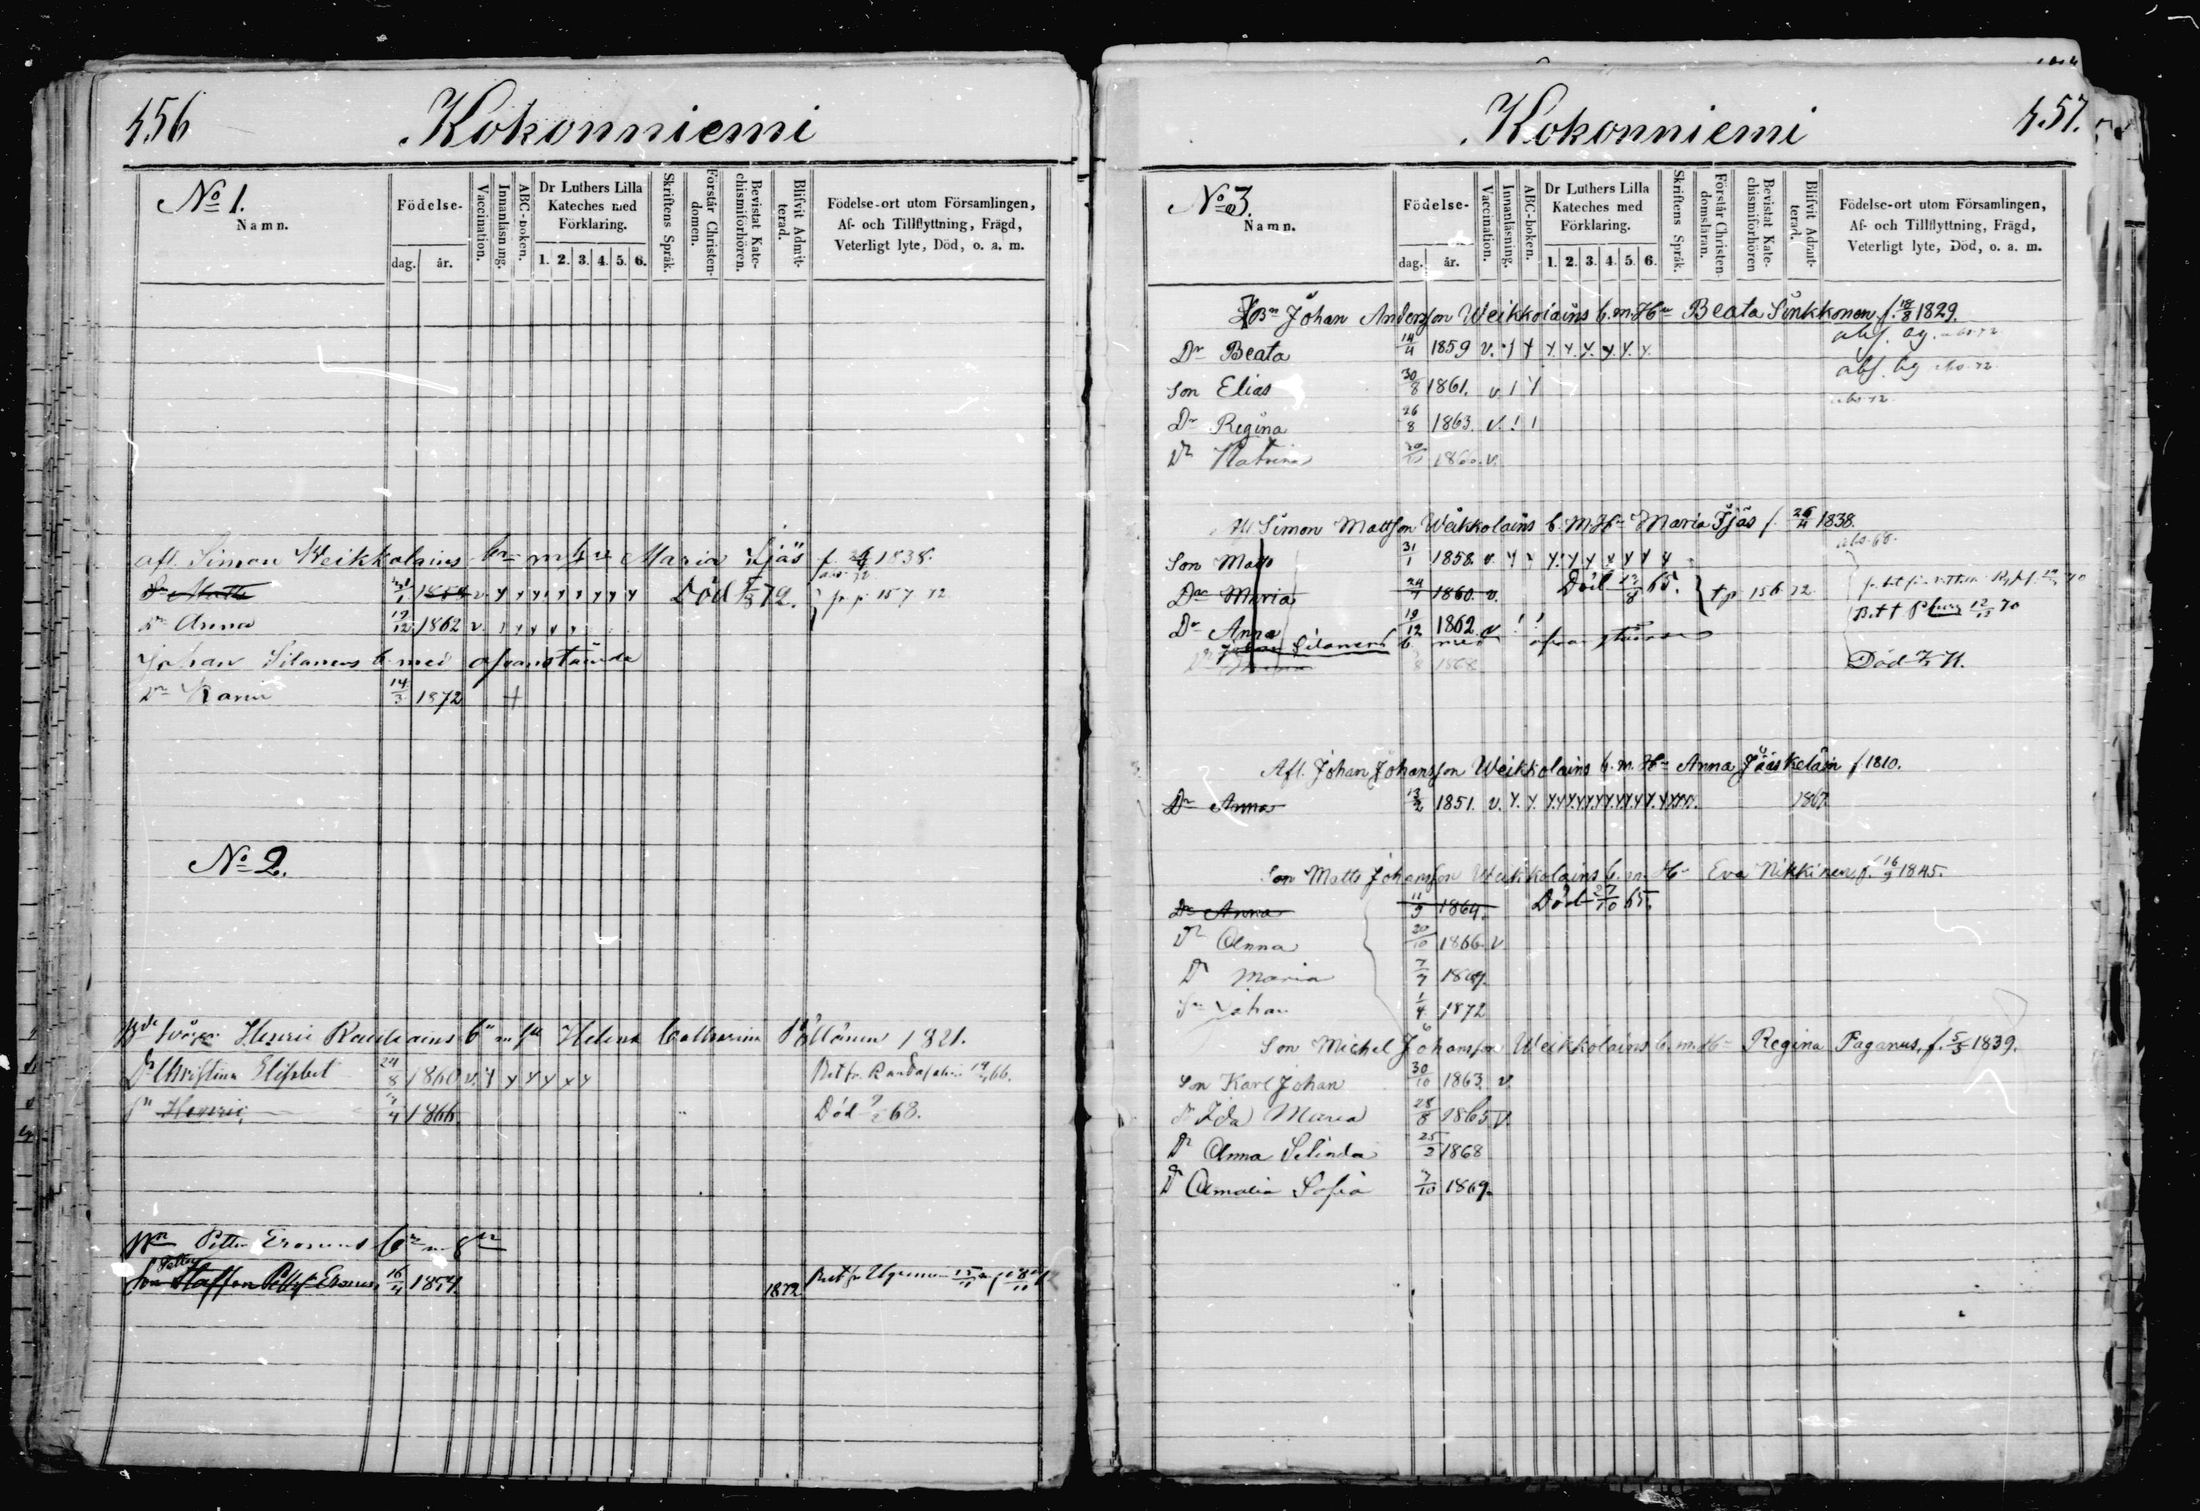 456
Kokonniemi
No 1.
Namn.
Födelse-
dag. år.
Vaccination.
Innanläsning.
ABC-boken.
Dr Luthers Lilla Kateches med Förklaring.
1. 2. 3. 4. 5. 6.
Skriftens Språk.
Förstår Christendomen.
Bevistat Katechismiförhören.
Blifvit Admitterad.
Födelse-ort utom Församlingen,
Af- och Tillflyttning, Frägd,
Veterligt lyte, Död, o. a. m.
afl. Simon Weikkolains bn m hu Maria Ijäs f. 1838.
Sn Matts 31/1 v. y y y y y y y y Död 72. fr p 157 72
Dr Anna 19/12 1862 v. y y y y
Johan Silanens b. med ofvanstående
Dr Karin 14/3 1872 +
No 2.
Henric b m hu Helena Catharina 1821.
Dr Christina Elisbet 24/8 1860 v. y y y y y y Bet fr. 66.
Sn Henric 4 1866 Död 68.
Pitter
Petter
Son Staffan 16/4 1854 1872 Bet fr
457.
Kokonniemi
No 3.
Namn.
Födelse-
dag. år.
Vaccination.
Innanläsning.
ABC-boken.
Dr Luthers Lilla Kateches med Förklaring.
1. 2. 3. 4. 5. 6.
Skriftens Språk.
Förstår Christendomsläran.
Bevistat Katechismiförhören
Blifvit Admitterad.
Födelse-ort utom Församlingen,
Af- och Tillflyttning, Frägd,
Veterligt lyte, Död, o. a. m.
Johan Andersson Weikkolains b. m. Hu Beata Sinkkonen f. 18/8 1829.
Dr Beata 14/4 1859 v. y y y. y. y. y. y. y.
Son Elias 30/8 1861. v. 1 y
Dr Regina 26/8 1863 v. ! !
Dr Katrina v.
Afl. Simon Mattsson Weikkolains b. m Hu Maria Ijäs f. 26/4 1838.
Son Matts 31/1 1858. v. y y y. y y y y y y
Dr Maria 24/7 1860. v. Död 12/8 65. fp 156 72
Dr Anna 19/12 1862 v ! !
Johan Silanens b. med ofvanstående
8 1868 Död 71.
Afl. Johan Johansson Weikkolains b. m. Hu Anna Jääskeläin f 1810.
Dr Anna 13/2 1851. v. y. y. 1867
Son Matts Johansson Weikkolains b. m. Hu Eva Nikkinen f. 16/9 1845.
Dr Anna 11/5 1864. Död 27/10 65.
Dr Anna 20/10 1866 v
Dr Maria 7/7 1869.
Sn Johan 1/4 1872
Son Michel Johansson Weikkolains b. m. Hu Regina Paganus, f. 5/5 1839.
Son Karl Johan 30/10 1863 v
Dr Ida Maria 28/8 1865 v
Dr Anna Selinda 25/2 1868
Dr Amalia Sofia 7/10 1869.